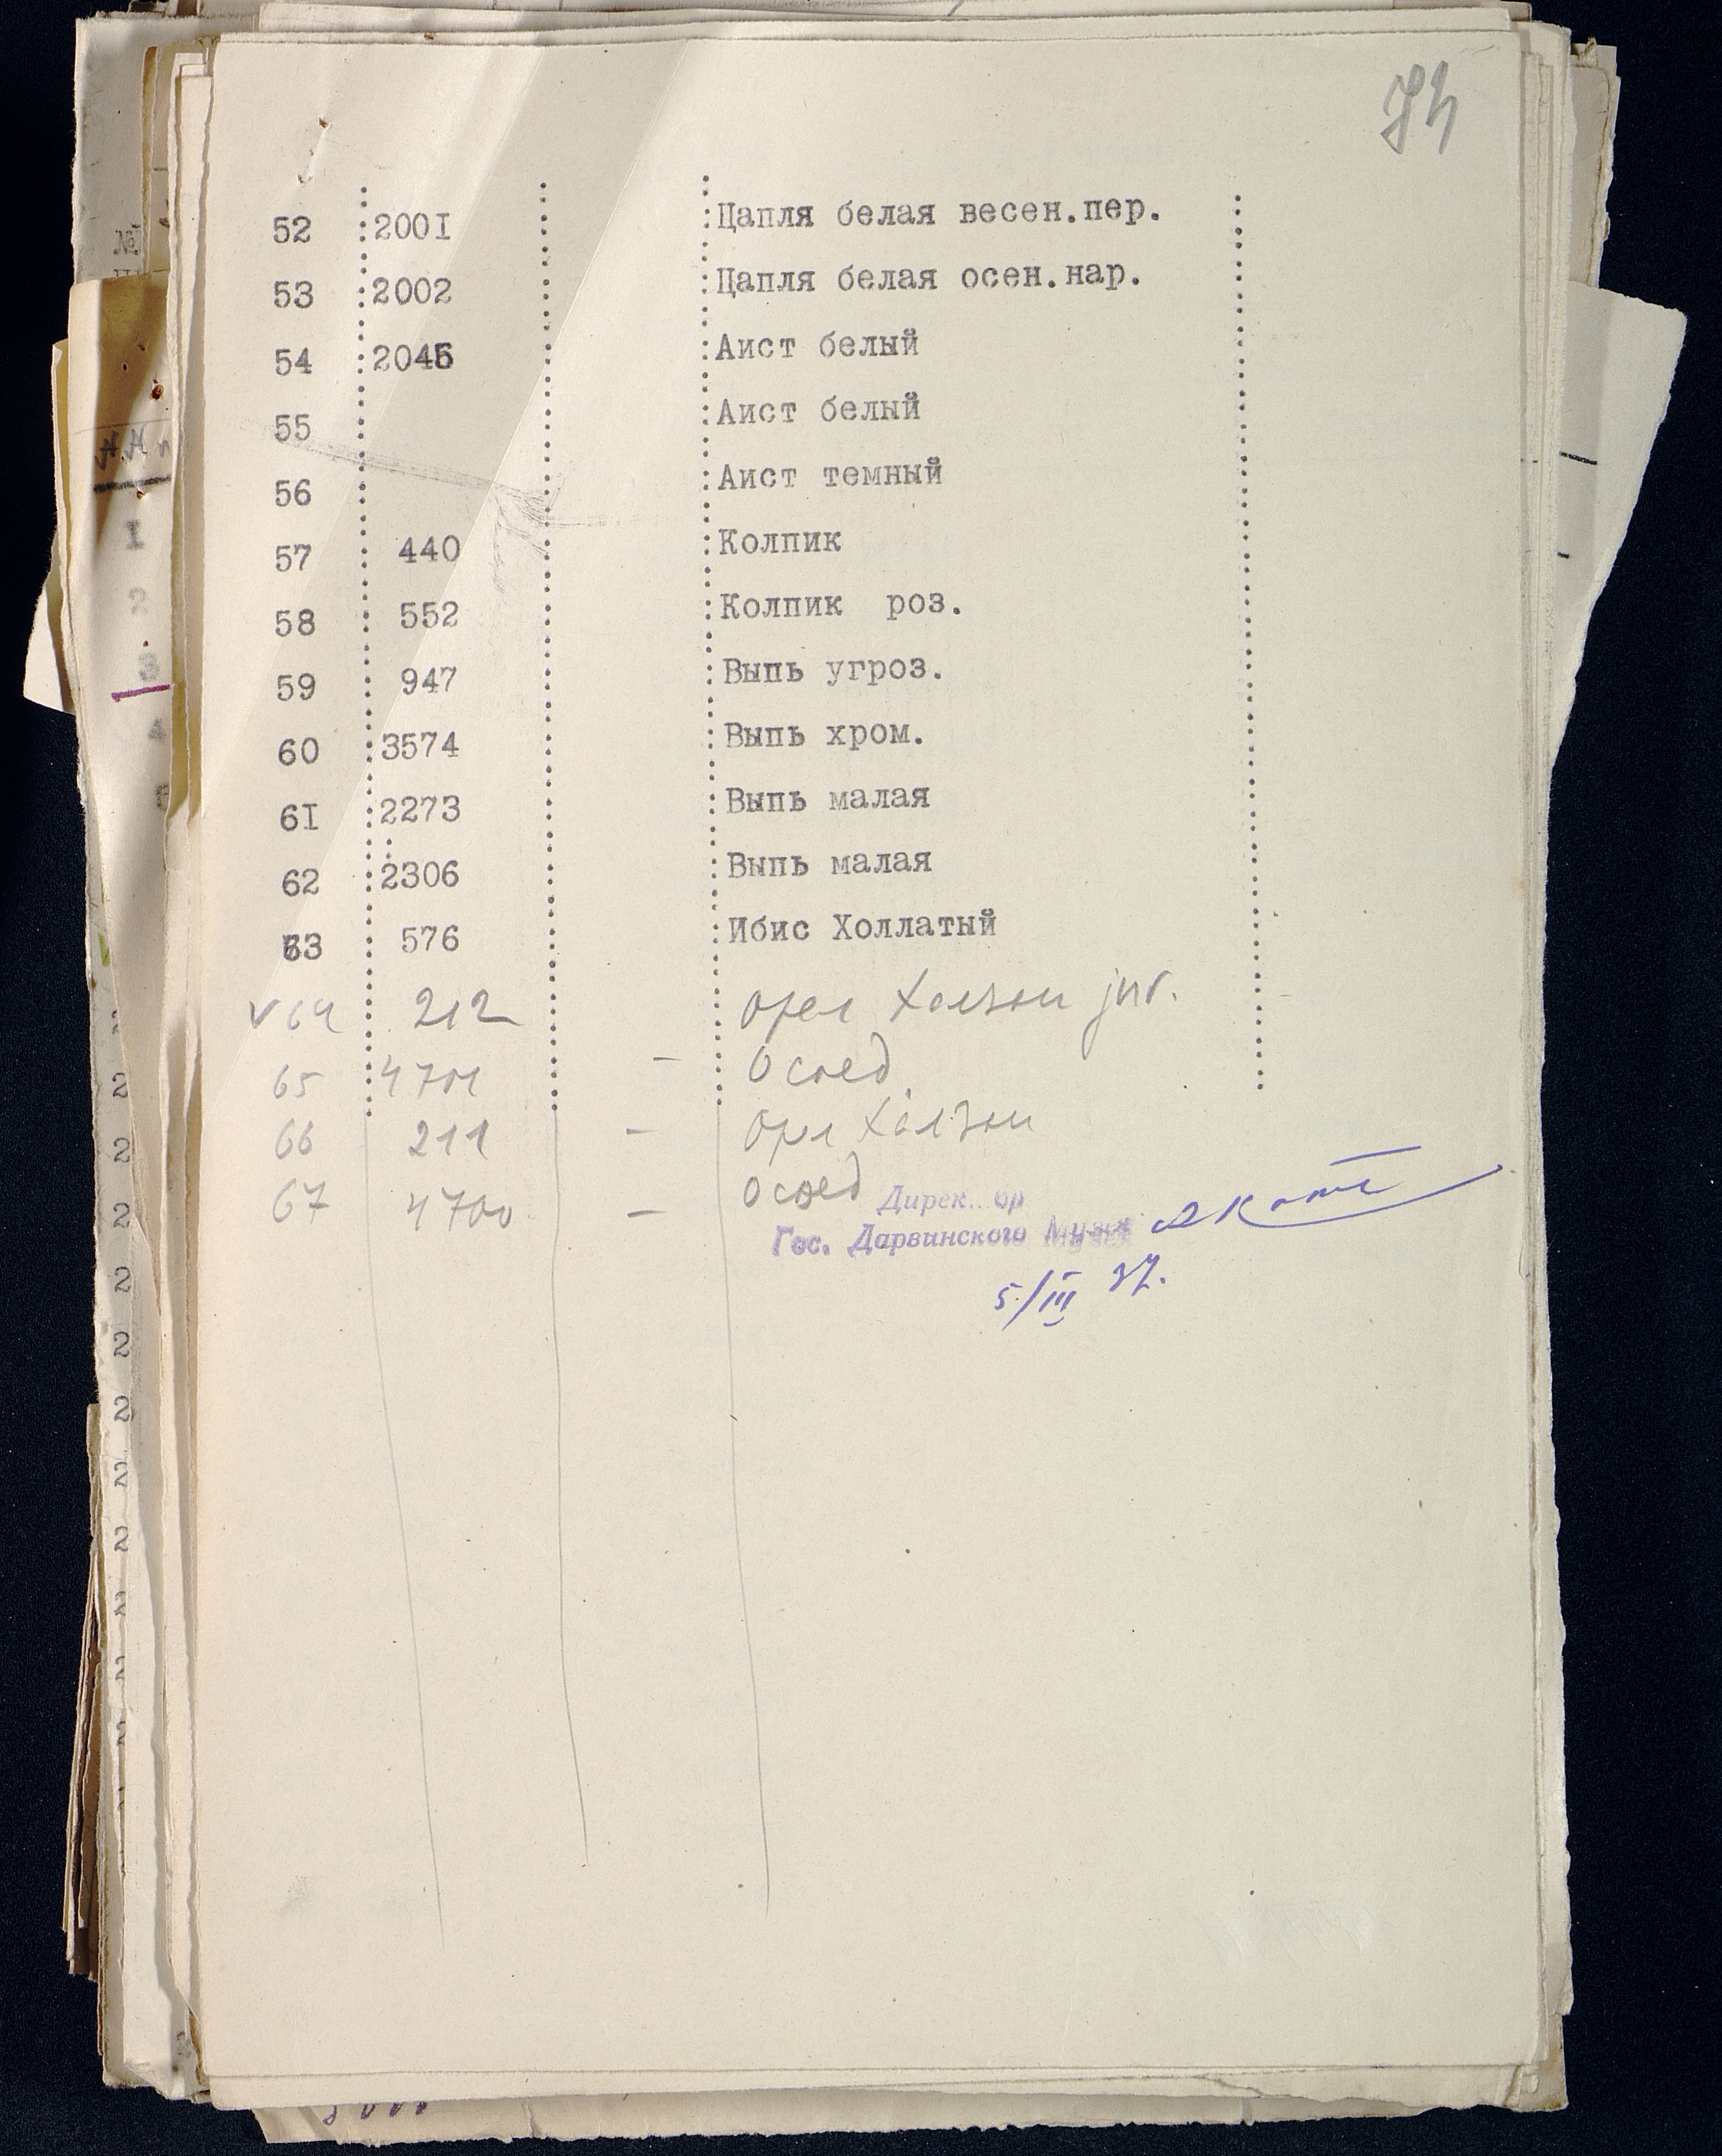 74
52 :2001 :Цапля белая весен.пер.
53 :2002 :Цапля белая осен.нар.
54 :2045 :Аист белый
55 :Аист белый
56 :Аист темный
57 440 :Колпик
58 552 :Колпик роз.
59 947 :Выпь угроз.
60 :3574 :Выпь хром.
61 :2273 :Выпь малая
62 :2306 :Выпь малая
63 576 :Ибис Холлатый
v 64 212 орел халзан juv.
65 4701 – Осоед
66 211 – орел халзан
67 4700 – осоед
Дирек..ор
Гос. Дарвинского Музея
5/III 37.